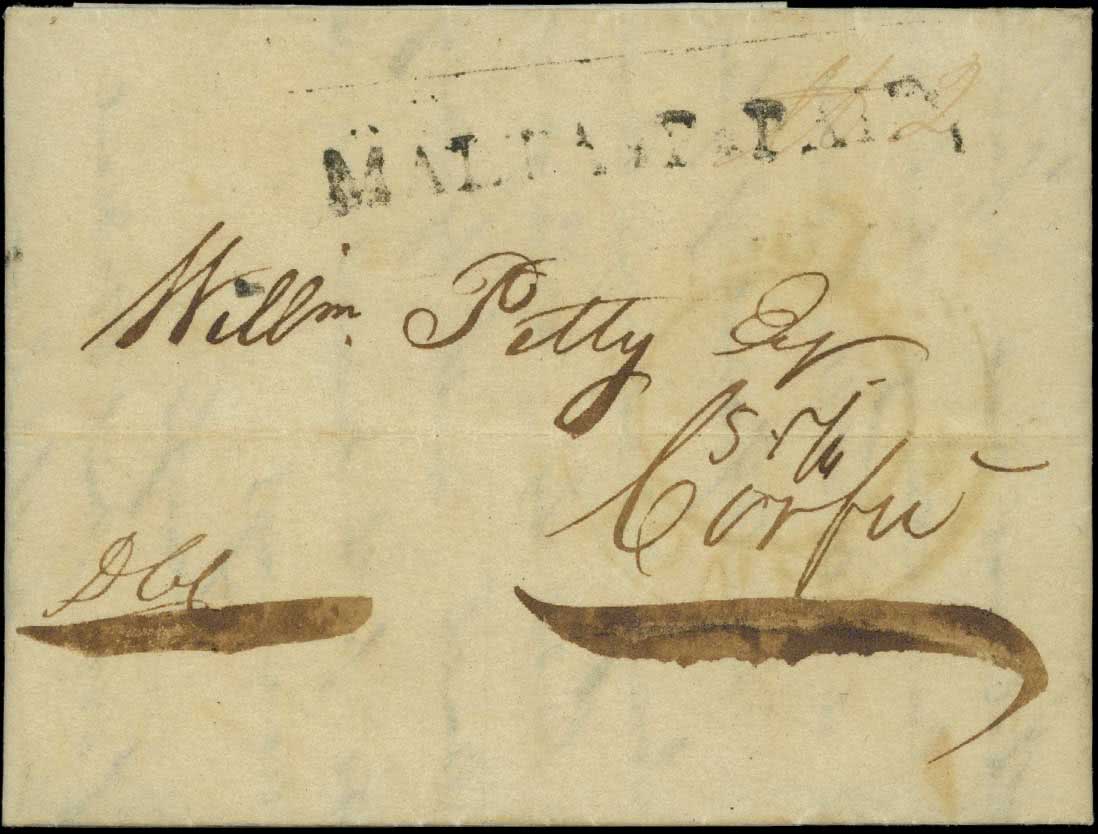 MALTA.P.PAID.
Willm. Petty Esq
Corfu
Dbl